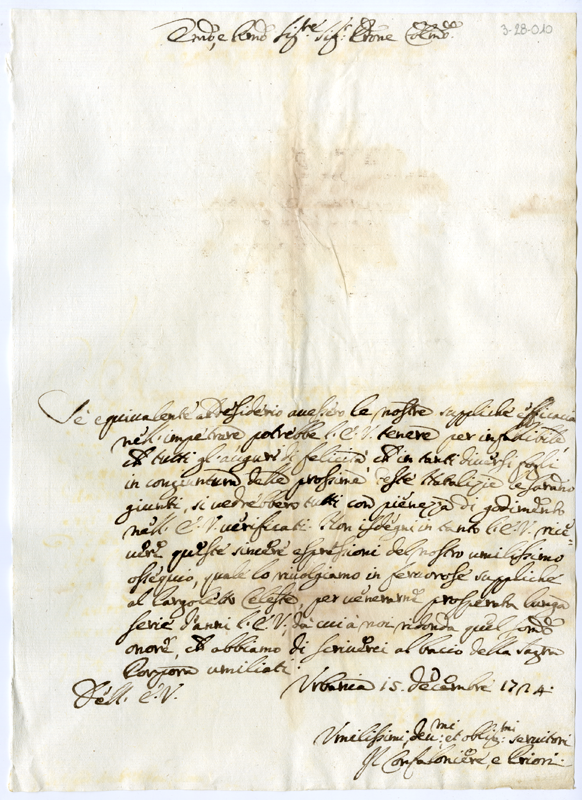 3-28-010
Em̃o, e Rem̃o Sig.re Sig.r Pr̃one Col.mo
Se equivalente al desiderio avessero le nostre suppliche efficacia
nell'impetrare potrebbe l'E.V. tenere per infallibile,
che tutti gl'auguri di felicità che in tanti diversi fogli
in congiuntura delle prossime feste Natalizie le saranno
giunti, si vedrebbero tutti con pienezza di godimento
nell'E.V. verificati. Non isdegni in tanto l'E.V. rice
vere queste sincere espressioni del nostro umilissimo
ossequio, quale lo rivolgiamo in fervorose suppliche
al Pargoletto Celeste, per venerarne prosperata lunga
serie d'anni l'E.V., da cui a noi ridonda quel
onore, che abbiamo di scriverci al bacio della sagra
Porpora umiliati.
Dell'E.V. Urbania 15. Decembre 1724.
Umilissimi, dev.mi et oblig.mi servitori
Il Confaloniere, e Priori.